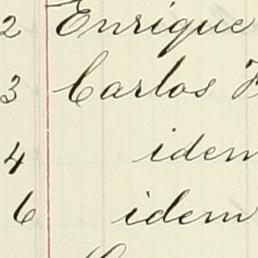 2 Enrique
3 Carlos
4 idem
6 idem